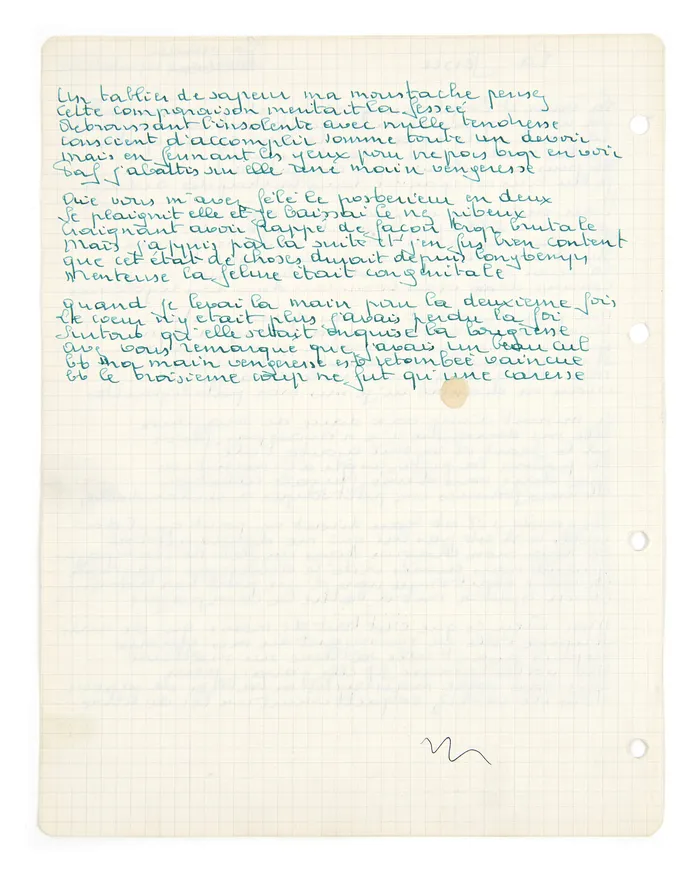 Un tablier de sapeur ma moustache pensez
Cette comparaison meritait la fessée
Retroussant l'insolente avec mille tendresse
conscient d'accomplir somme toute un devoir
Mais en fermant les yeux pour ne pas trop en voir
Paf j'abattis sur elle une main vengeresse
Aïe vous m'avez fêlé le posterieur en deux
Se plaignit elle et je baissai le nez piteux
Craignant avoir frappé de façon trop brutale
Mais j'appris par la suite et j'en fus bien content
que cet état de choses durait depuis longtemps
Menteuse la felure était congenitale
quand je levai la main pour la deuxieme fois
Le coeur n'y etait plus j'avais perdu la foi
Surtout qu'elle s'etait enquise la bougresse
Avez vous remarque que j'avais un beau cul
Et ma main vengeresse est retombée vaincue
Et le troisieme coup ne fut qu'une caresse